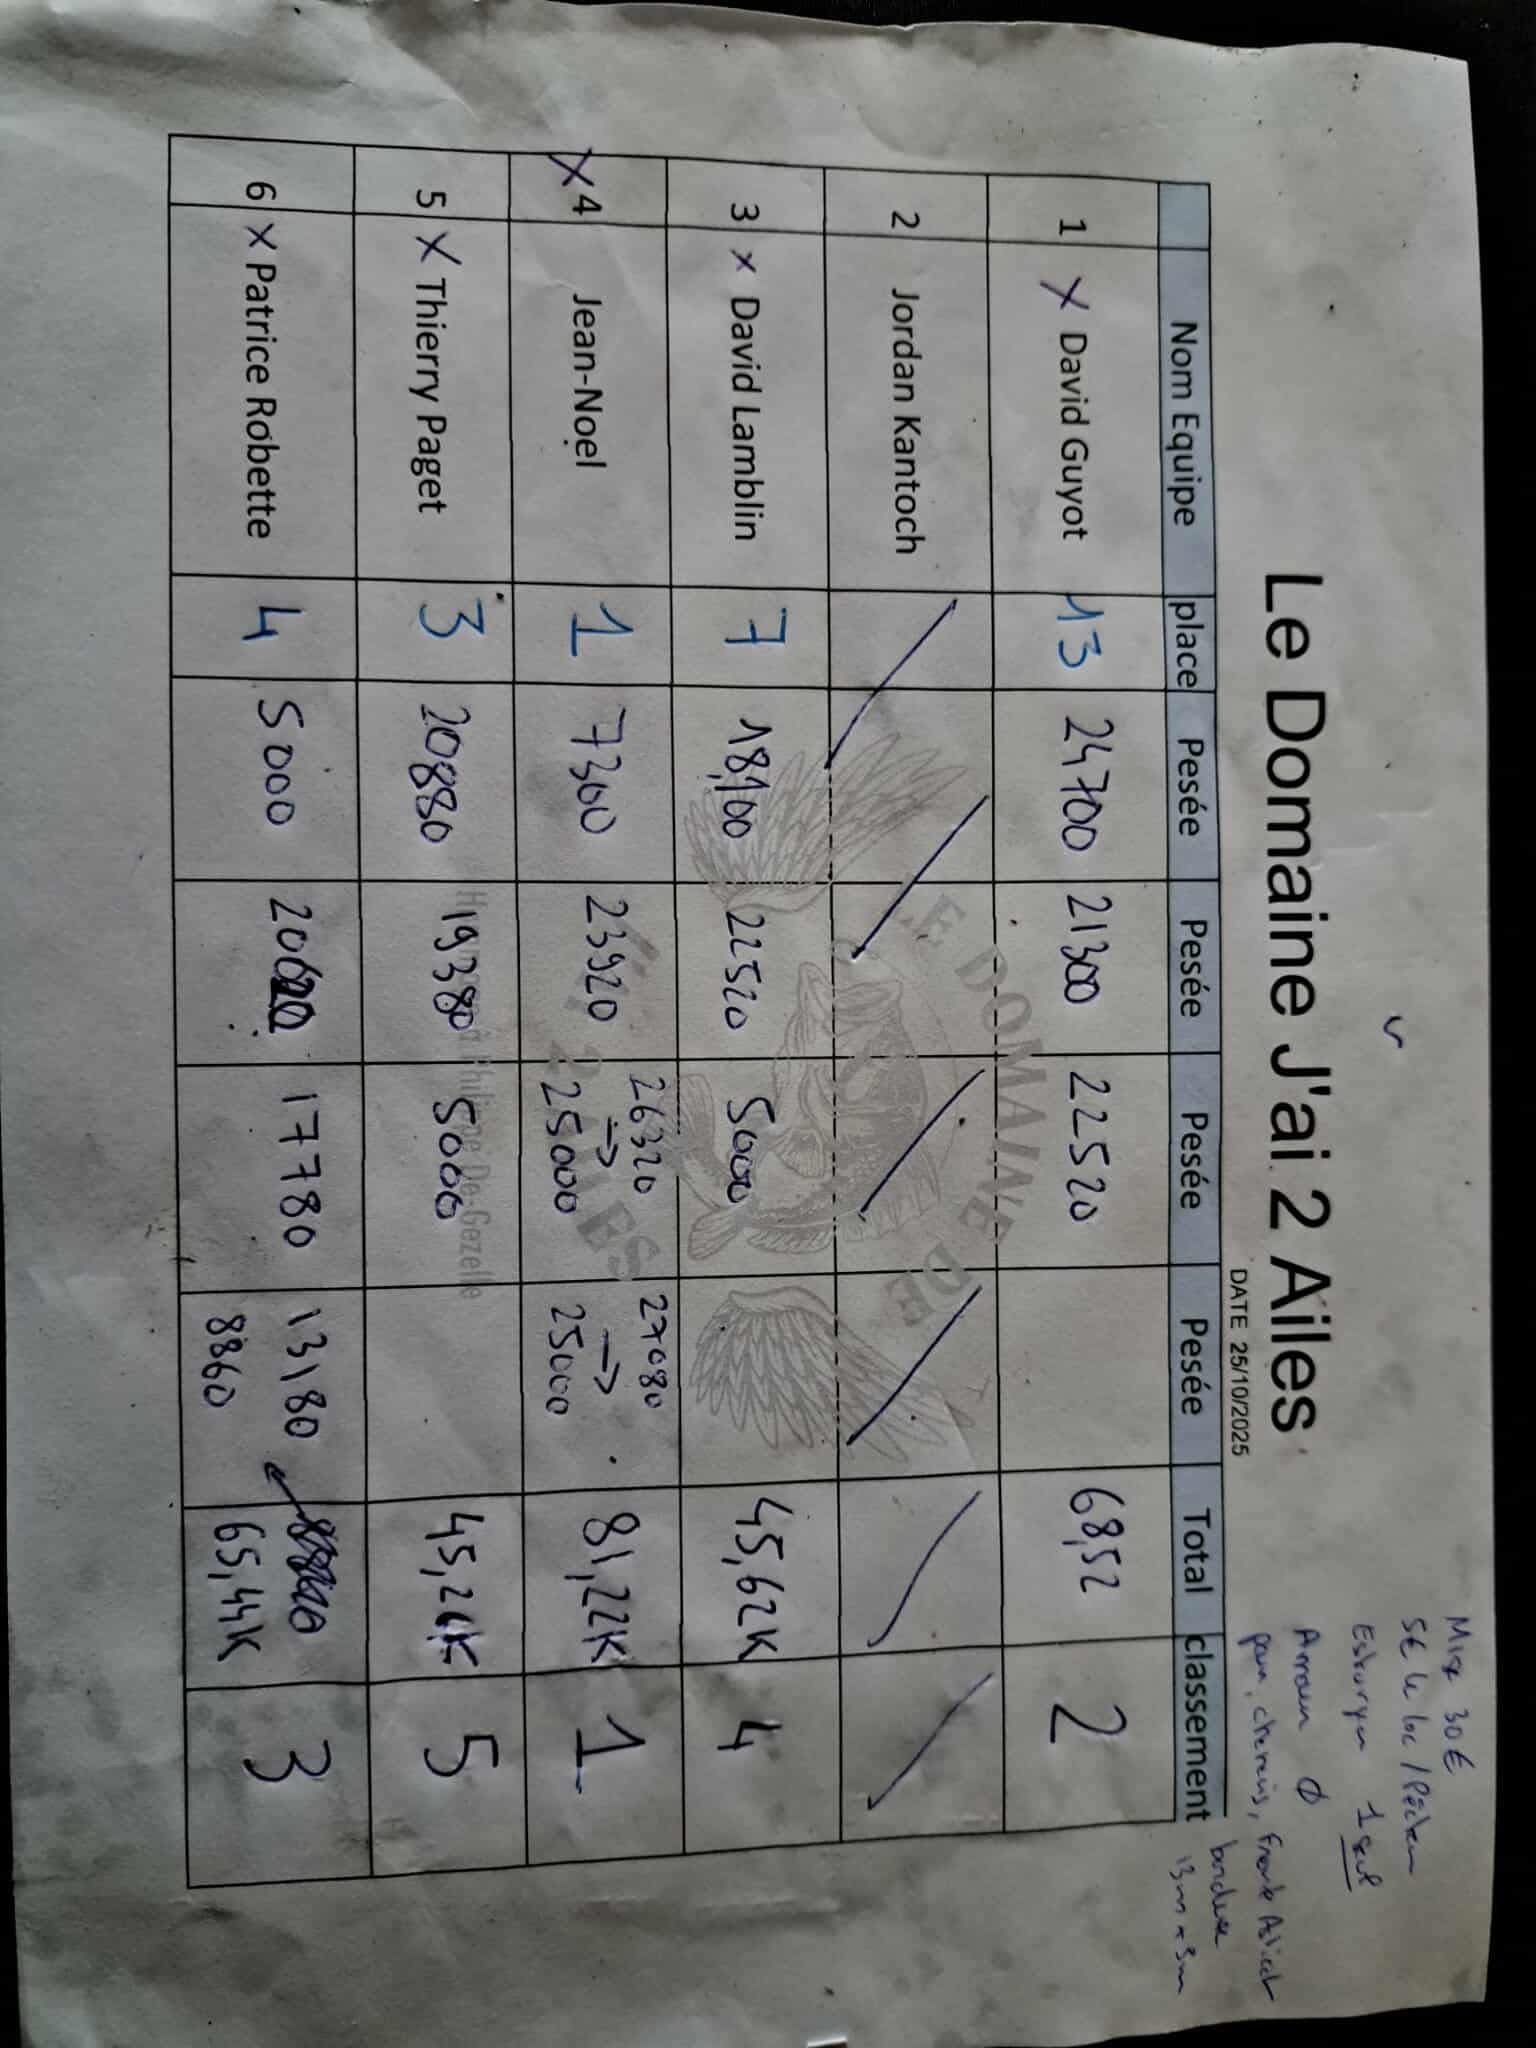 Mise 30€
5€ le loc / Pêcheur
Esturgeon 1 seul
Amorce Ø
pain, chenevis,
bordure
13m
Le Domaine J'ai 2 Ailes
DATE 25/10/2025
Nom Equipe place Pesée Pesée Pesée Pesée Total classement
1 X David Guyot 13 24700 21300 22520 68,52 2
2 Jordan Kantoch
3 X David Lamblin 7 18,100 22520 5000 45,62K 4
X 4 Jean-Noel 1 7300 23920 26320 → 25000 27080 → 25000 81,22K 1
5 X Thierry Paget 3 20880 19380 5000 45,26K 5
6 X Patrice Robette 4 5000 17780 13180 65,44K 3
8860
LE DOMAINE DE
J'AI 2 AILES